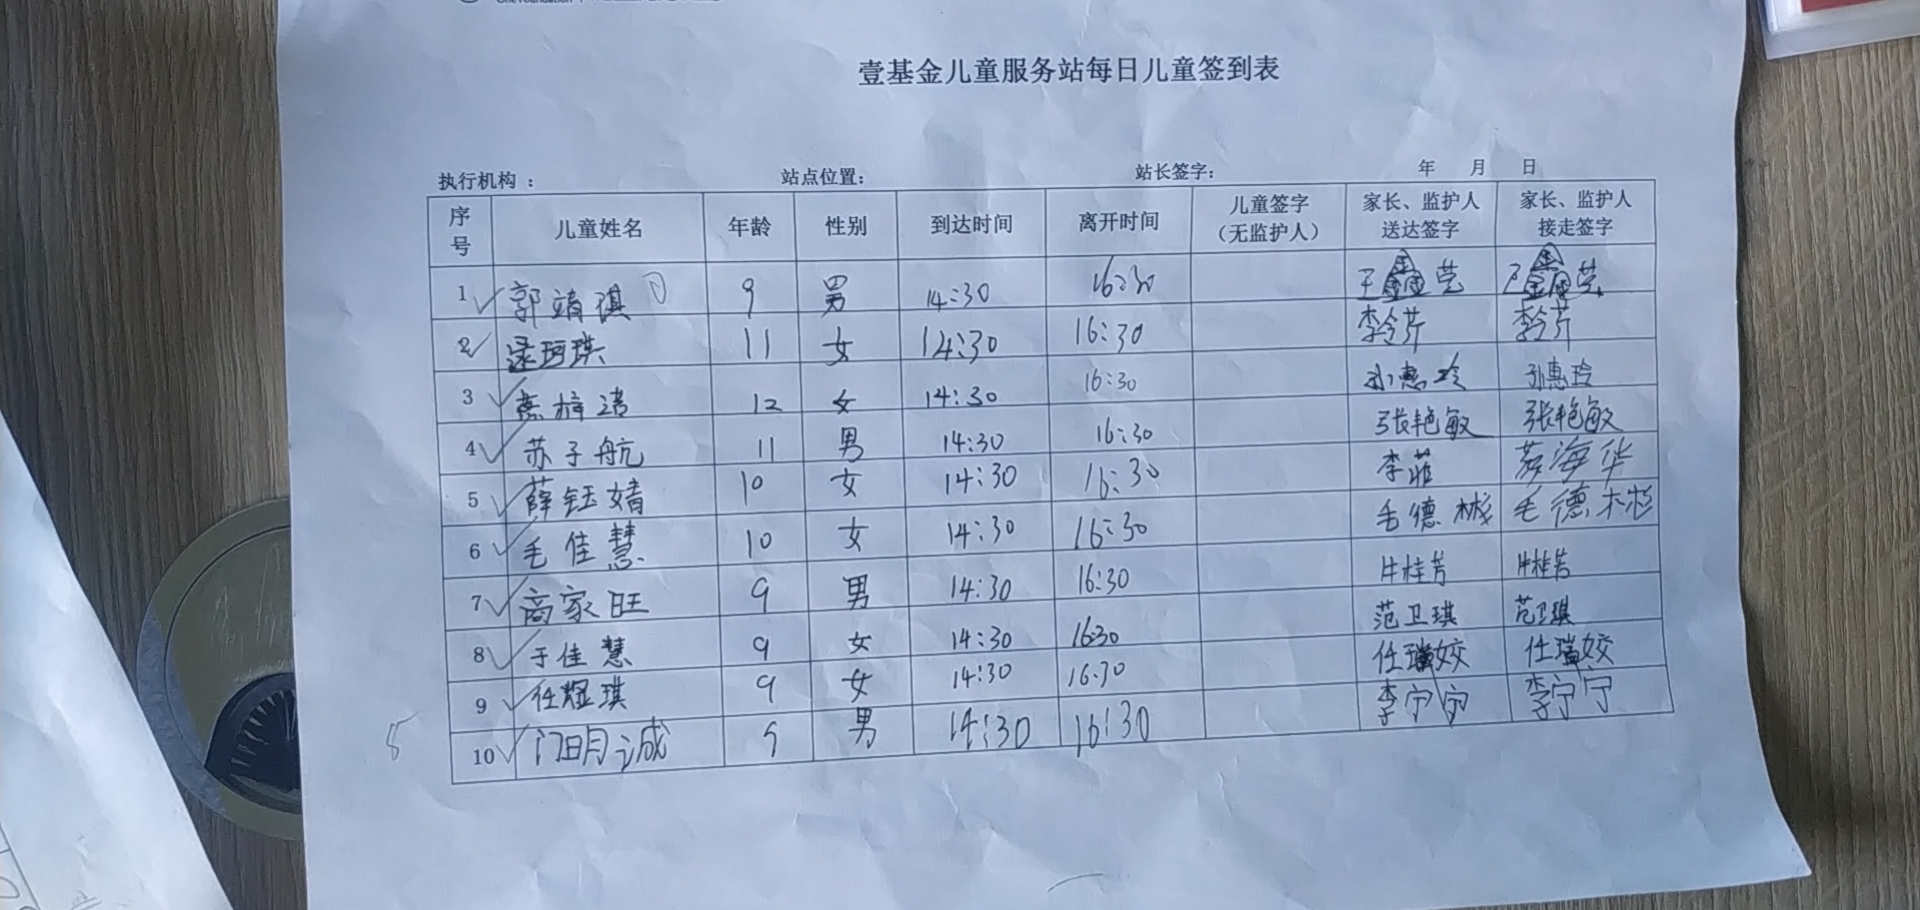 壹基金儿童服务站每日儿童签到表
执行机构： 站点位置： 站长签字： 年 月 日
序号 儿童姓名 年龄 性别 到达时间 离开时间 儿童签字（无监护人） 家长、监护人送达签字 家长、监护人接走签字
1 郭靖琪 9 男 14:30 16:30 王鑫芸 王鑫芸
2 11 女 14:30 16:30 李令芹 李令芹
3 12 女 14:30 16:30 孙惠玲 孙惠玲
4 苏子航 11 男 14:30 16:30 张艳敏 张艳敏
5 薛钰婧 10 女 14:30 16:30 李菲
6 毛佳慧 10 女 14:30 16:30 毛德彬 毛德彬
7 商家旺 9 男 14:30 16:30 牛桂芳 牛桂芳
8 于佳慧 9 女 14:30 16:30 范卫琪 范卫琪
9 任煜琪 9 女 14:30 16:30 任瑞姣 任瑞姣
10 门明诚 9 男 14:30 16:30 李宁宁 李宁宁